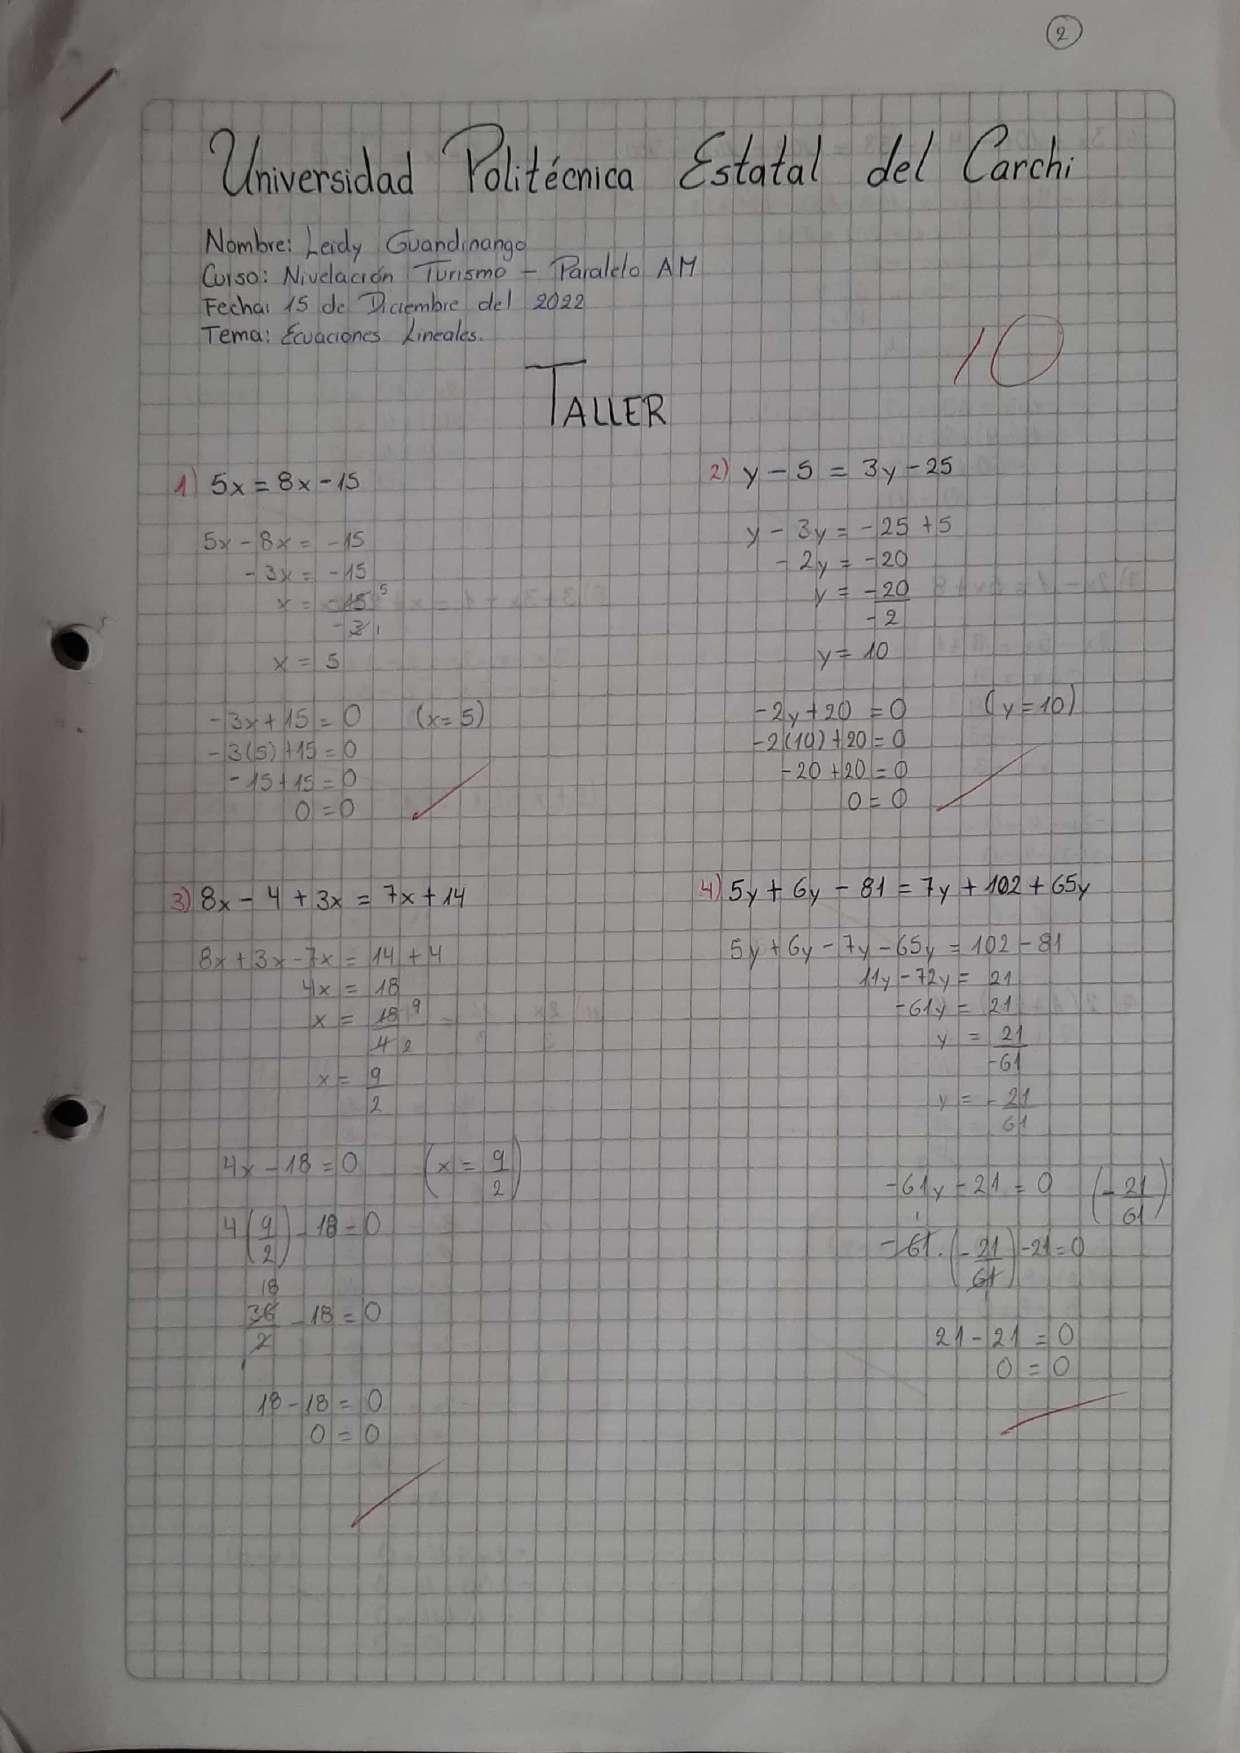 2
Universidad Politécnica Estatal del Carchi
Nombre: Leidy Guandinango
Curso: Nivelación Turismo - Paralelo AM
Fecha: 15 de Diciembre del 2022
Tema: Ecuaciones Lineales.
10
TALLER
1) 5x = 8x - 15
5x - 8x = -15
-3x = -15
x = -15 5
-3 1
x = 5
-3x + 15 = 0 (x = 5)
-3(5) + 15 = 0
-15 + 15 = 0
0 = 0
2) y - 5 = 3y - 25
y - 3y = -25 + 5
-2y = -20
y = -20
-2
y = 10
-2y + 20 = 0 (y = 10)
-2(10) + 20 = 0
-20 + 20 = 0
0 = 0
3) 8x - 4 + 3x = 7x + 14
8x + 3x - 7x = 14 + 4
4x = 18
x = 18 9
4 2
x = 9
2
4x - 18 = 0 (x = 9/2)
4(9/2) - 18 = 0
18
36/2 - 18 = 0
18 - 18 = 0
0 = 0
4) 5y + 6y - 81 = 7y + 102 + 65y
5y + 6y - 7y - 65y = 102 - 81
11y - 72y = 21
-61y = 21
y = 21
-61
y = - 21
61
-61y - 21 = 0 (-21/61)
1
-61 . (-21/61) - 21 = 0
21 - 21 = 0
0 = 0